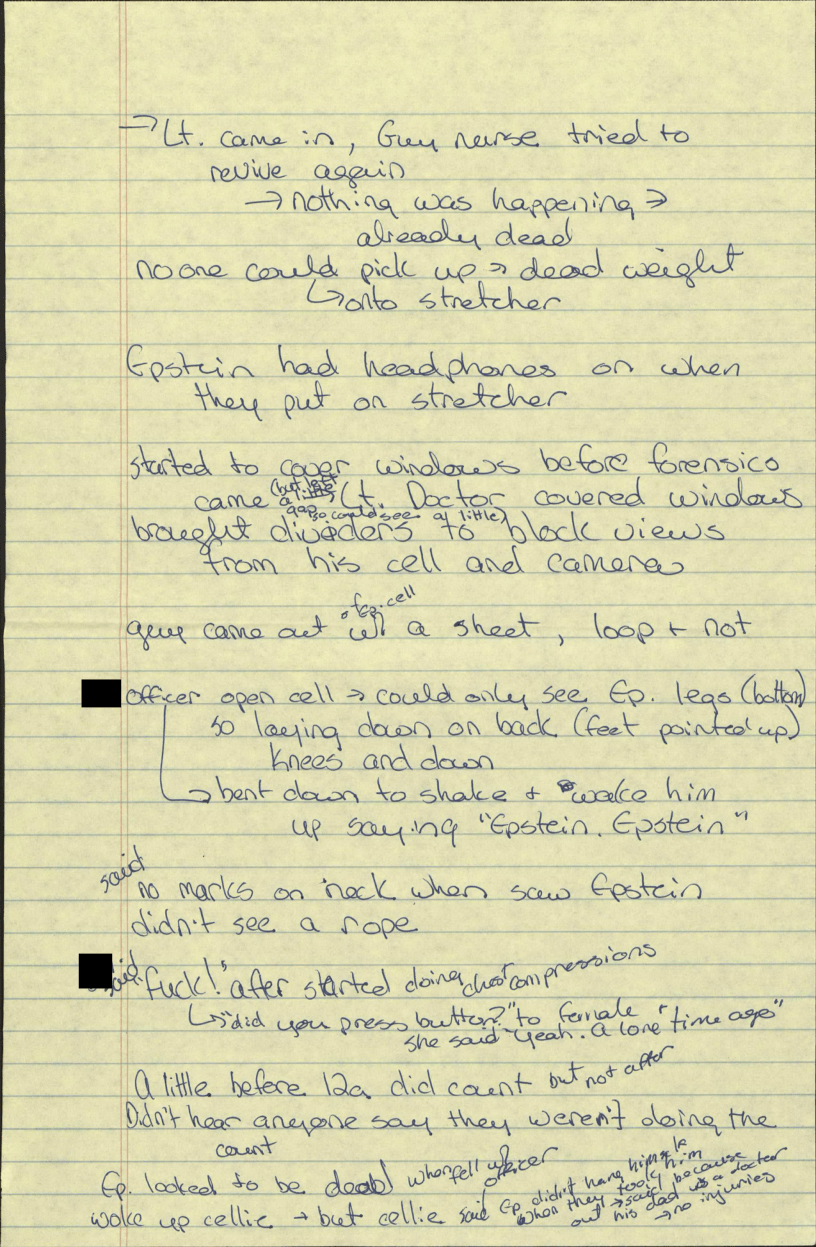 → Lt. came in, Guy nurse tried to
revive again
→ nothing was happening →
already dead
no one could pick up → dead weight
↳ onto stretcher
Epstein had headphones on when
they put on stretcher
started to cover windows before forensics
(but left
came a little (Lt. Doctor covered windows
gap so could see a little)
brought dividers to block views
from his cell and camera
of Ep. cell
guy came out w/ a sheet, loop + not
officer open cell → could only see Ep. legs (bottom)
so laying down on back (feet pointed up)
knees and down
↳ bent down to shake + wake him
up saying "Epstein. Epstein"
said
no marks on neck when saw Epstein
didn't see a rope
said "fuck!" after started doing chest compressions
↳ "did you press button?" to female
she said "yeah. a long "time ago"
A little before 12a did count but not after
Didn't hear anyone say they weren't doing the
count
Ep. looked to be dead when fell officer
woke up cellie → but cellie said Ep. didn't hang himself
when they took him
out → said because
his dad is a doctor
→ no injuries